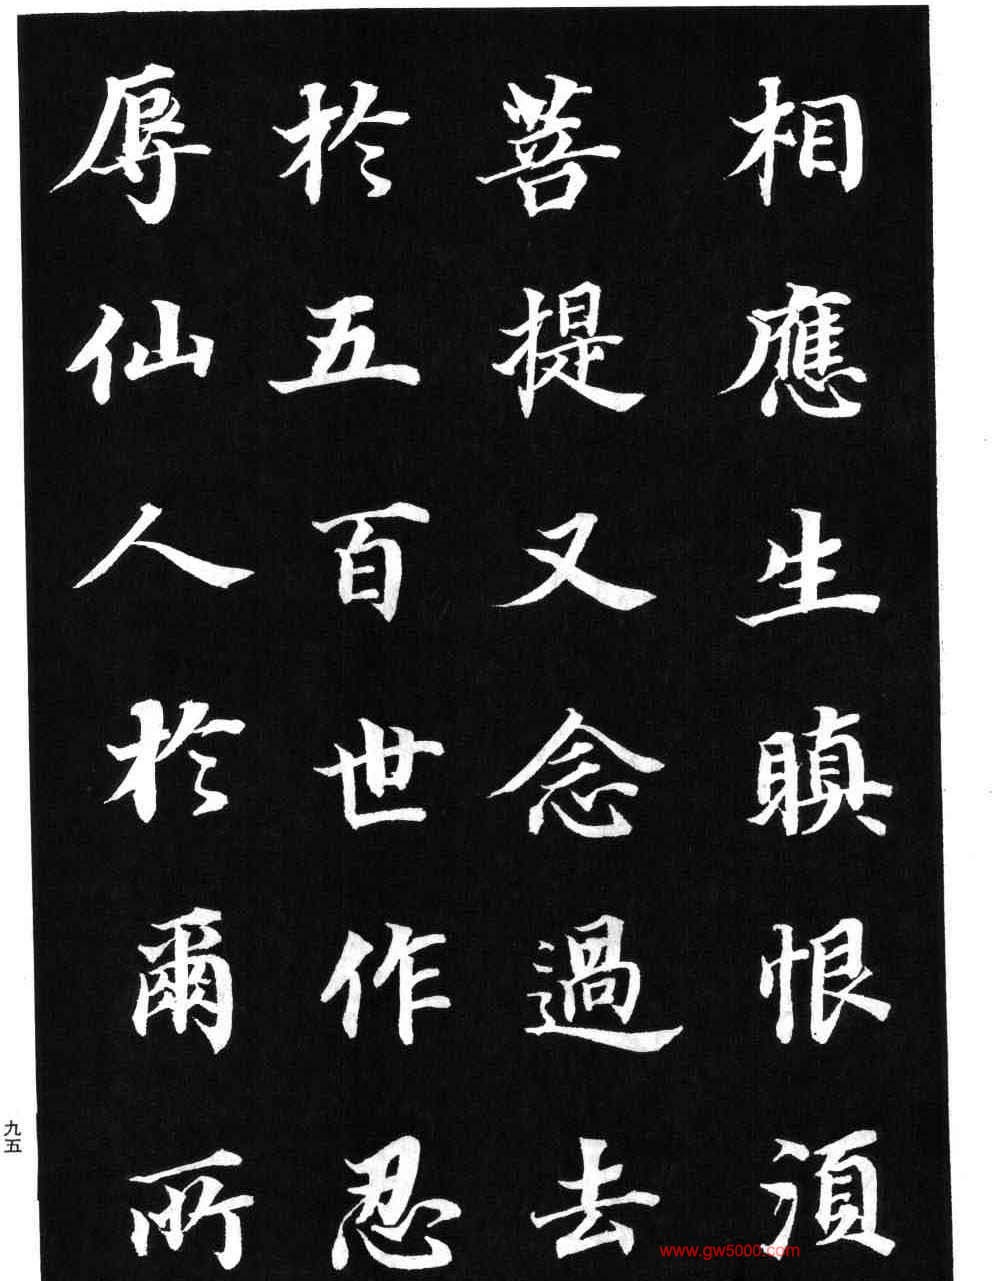 相應生瞋恨須
菩提又念過去
於五百世作忍
辱仙人於爾所
九五
www.gw5000.com